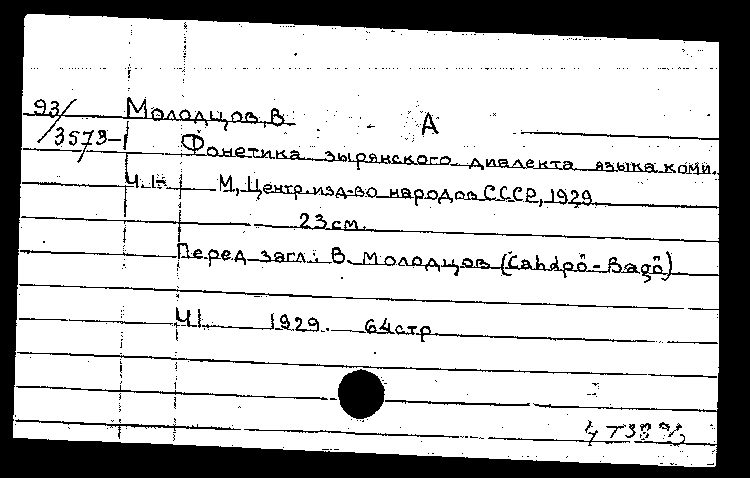 93/3573-1
Молодцов, В. А
Фонетика зырянского диалекта языка коми.
Ч. I- М, Центр. изд-во народов СССР, 1929
23 см.
Перед загл.: В. Молодцов (Сандрö-Вадö)
Ч I. 1929. 64 стр.